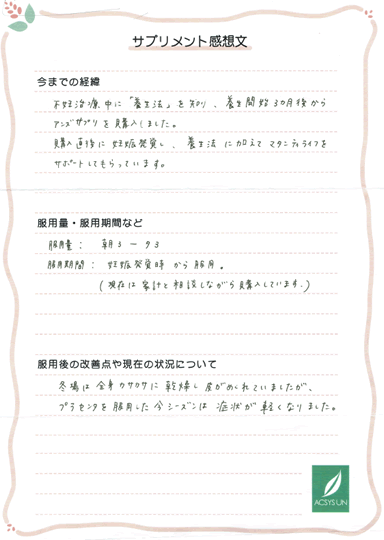 サプリメント感想文
今までの経緯
不妊治療中に「養生法」を知り、養生開始3カ月後から
アンズサプリを購入しました。
購入直後に妊娠発覚し、養生法に加えてマタニティライフを
サポートしてもらっています。
服用量・服用期間など
服用量： 朝3 ー 夕3
服用期間： 妊娠発覚時から服用。
(現在は家計と相談しながら購入しています.)
服用後の改善点や現在の状況について
冬場は全身カサカサに乾燥し皮がめくれていましたが、
プラセンタを服用した今シーズンは症状が軽くなりました。
ACSYS UN